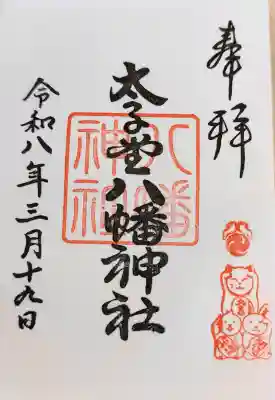 奉拝
太子堂八幡神社
八幡神社
令和八年三月十九日